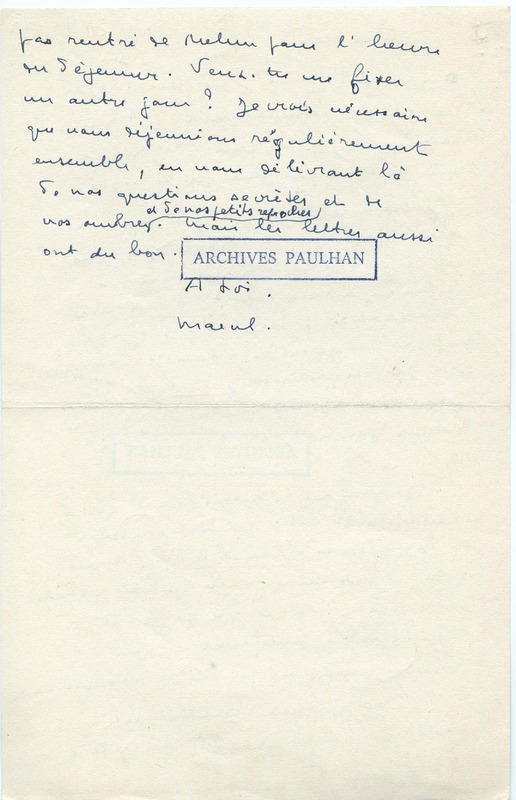 pas rentré de Melun pour l'heure
du déjeuner. Veux-tu me fixer
un autre jour ? Je crois nécessaire
que nous déjeunions régulièrement
ensemble, en nous délivrant là
de nos questions secrètes et de
et de nos petits reproches
nos ombres. Mais les lettres aussi
ont du bon.
ARCHIVES PAULHAN
A toi.
Marcel.